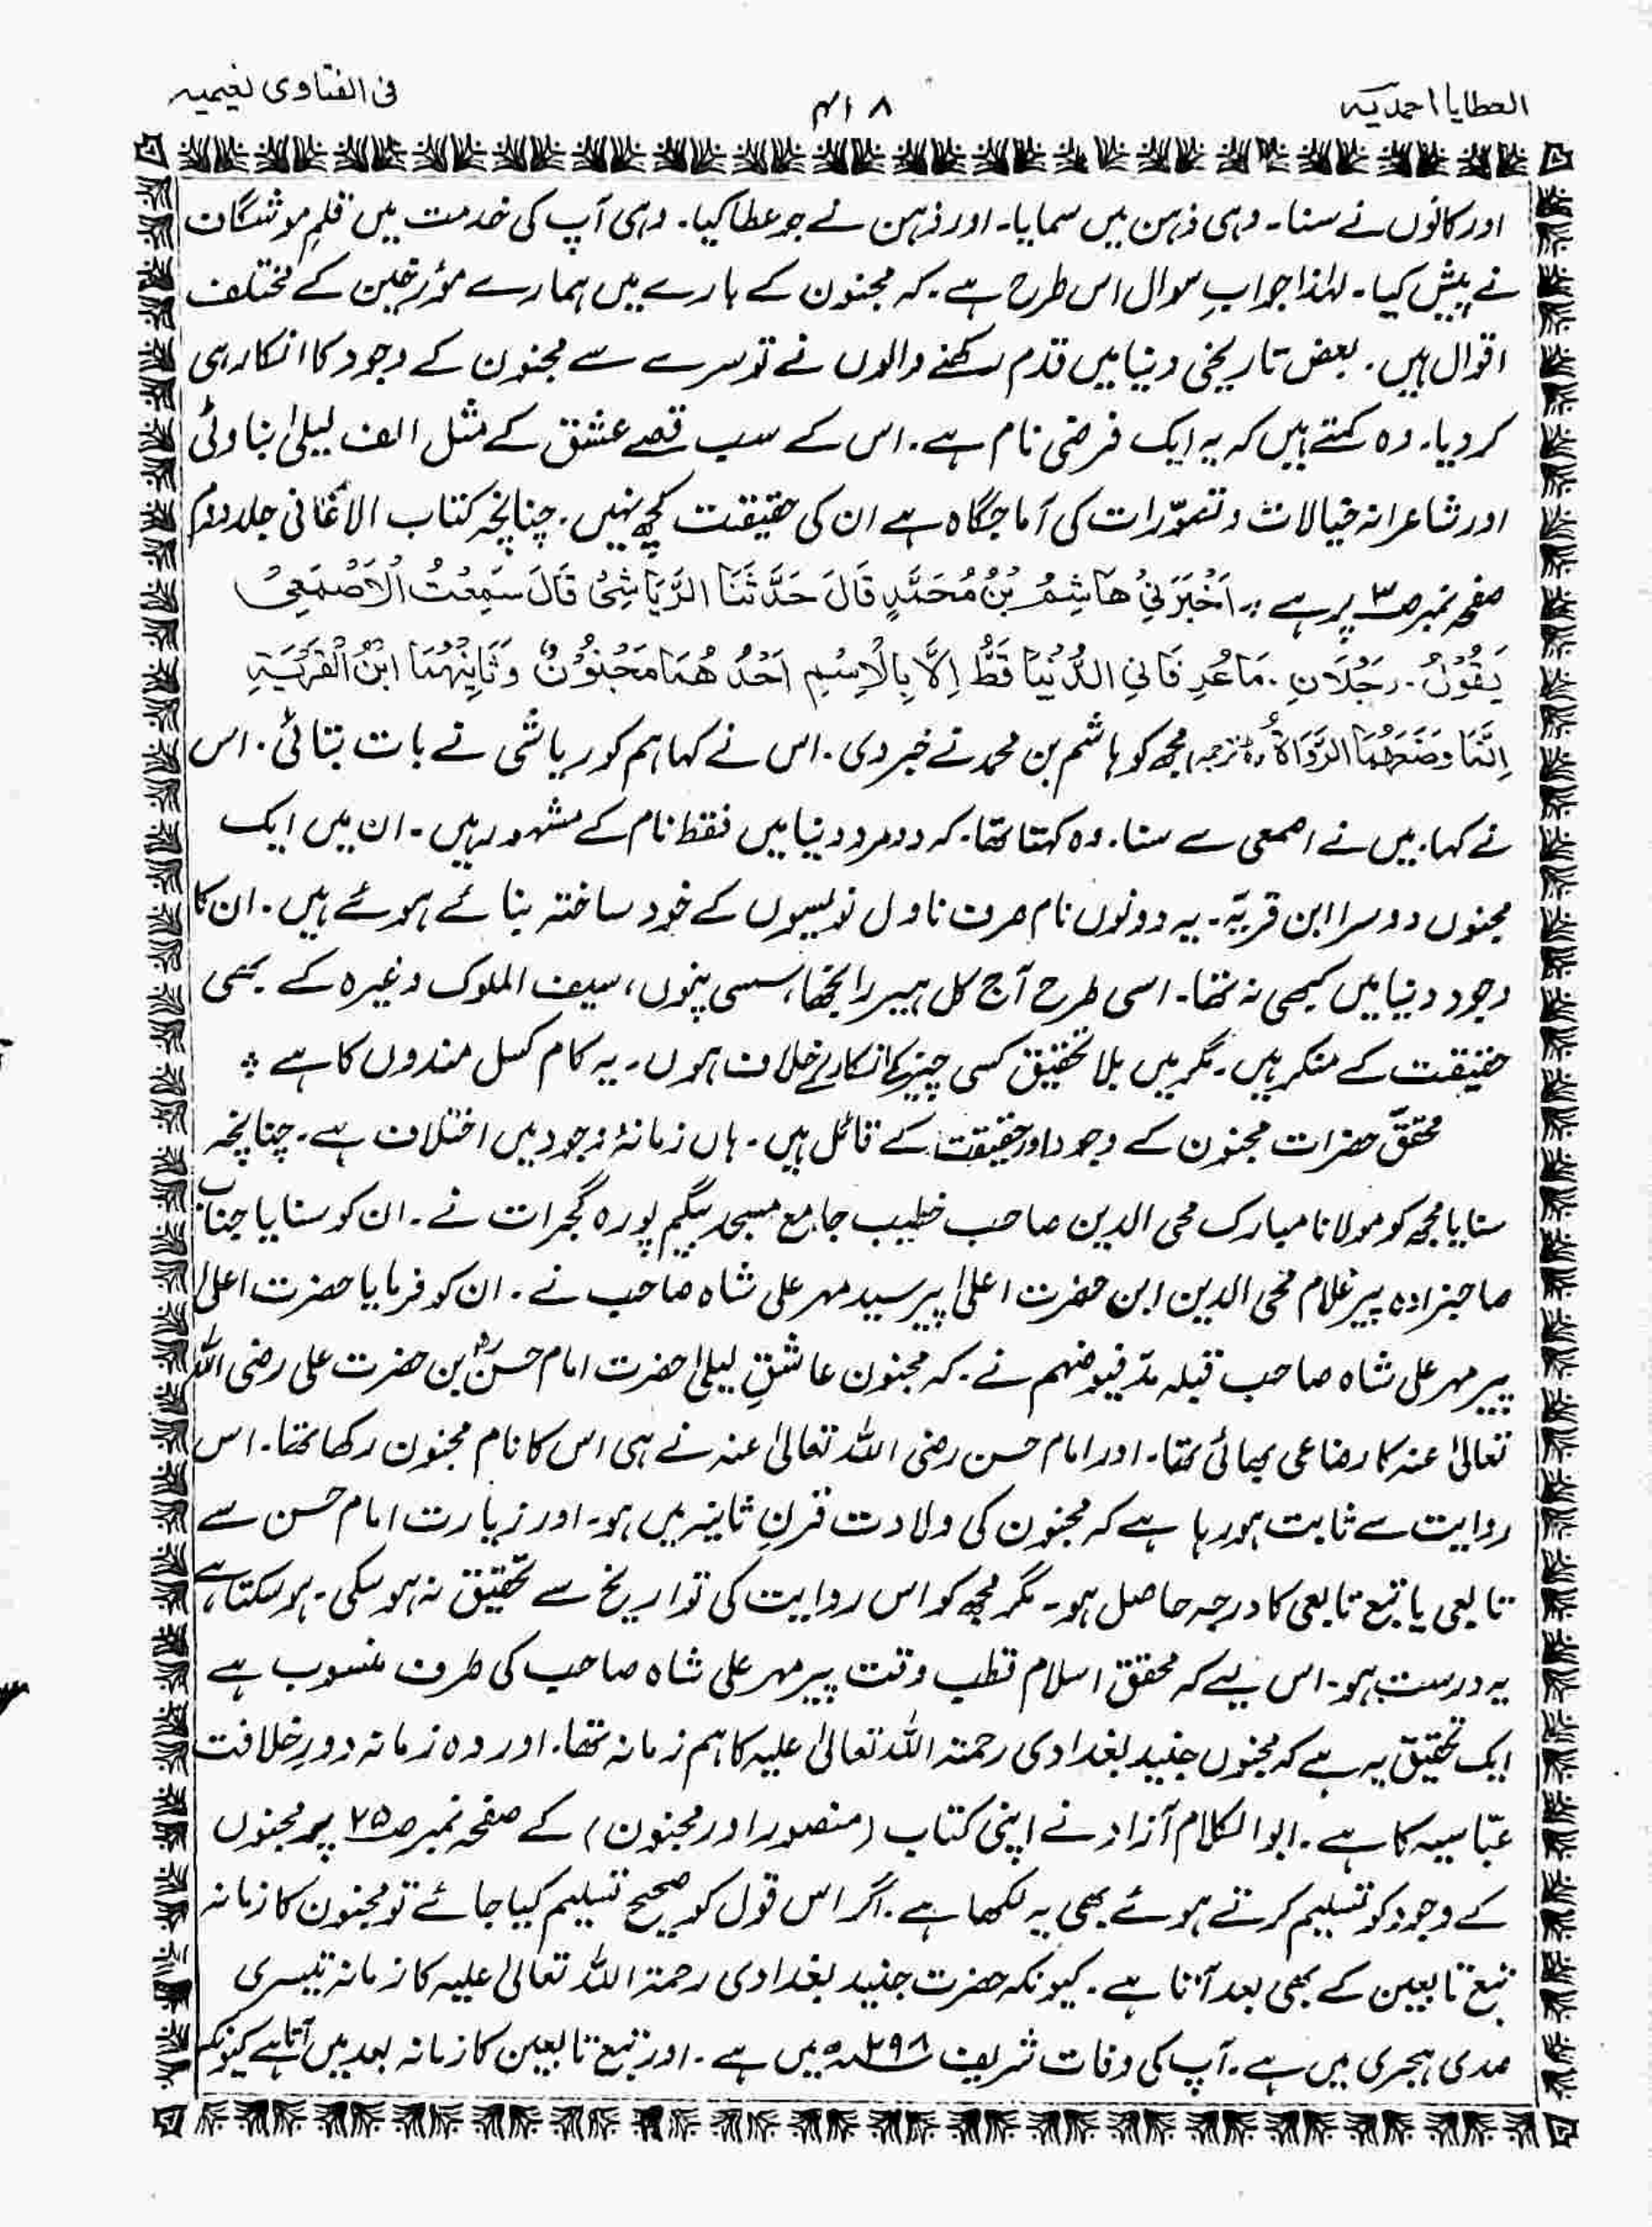 العطایا احمدیہ
۴۱۸
فی الفتاوی نعیمیہ
اور کانوں نے سنا۔ وہی ذہن میں سمایا۔ اور ذہن نے جو عطا کیا۔ وہی آپ کی خدمت میں قلمِ موشگاف
نے پیش کیا۔ لہٰذا جوابِ سوال اس طرح ہے۔ کہ مجنون کے بارے میں ہمارے مؤرخین کے مختلف
اقوال ہیں۔ بعض تاریخی دنیا میں قدم رکھنے والوں نے تو سرے سے مجنون کے وجود کا انکار ہی
کر دیا۔ وہ کہتے ہیں کہ یہ ایک فرضی نام ہے۔ اس کے سب قصے عشق کے مثل الف لیلیٰ بناوٹی
اور شاعرانہ خیالات و تصوّرات کی آماجگاہ ہے ان کی حقیقت کچھ نہیں۔ چنانچہ کتاب الاغانی جلد دوم
صفحہ نمبر ص۳ پر ہے :۔ اَخْبَرَنِیْ هَاشِمُ بْنُ مُحَمَّدٍ قَالَ حَدَّثَنَا الرَّیَاشِیُّ قَالَ سَمِعْتُ الْاَصْمَعِیْ
یَقُوْلُ۔ رَجُلَانِ۔ مَا عُرِفَا فِی الدُّنْیَا قَطُّ اِلَّا بِالْاِسْمِ اَحَدُ هُمَا مَجْنُوْنٌ وَثَانِیْهُمَا ابْنُ الْقَرْیَةِ
اِنَّمَا وَضَعَهُمَا الرُّوَاةُ ؕ ترجمہ مجھ کو ہاشم بن محمد نے خبر دی۔ اس نے کہا ہم کو ریاشی نے بات بتائی۔ اس
نے کہا۔ میں نے اصمعی سے سنا۔ وہ کہتا تھا۔ کہ دو مرد دنیا میں فقط نام کے مشہور ہیں۔ ان میں ایک
مجنوں دوسرا ابن قریّہ۔ یہ دونوں نام صرف ناول نویسوں کے خود ساختہ بنائے ہوئے ہیں۔ ان کا
وجود دنیا میں کبھی نہ تھا۔ اسی طرح آج کل ہیر رانجھا، سسی پنوں، سیف الملوک وغیرہ کے بھی
حقیقت کے منکر ہیں۔ مگر میں بلا تحقیق کسی چیز کے انکار کے خلاف ہوں۔ یہ کام کسل مندوں کا ہے ؞
محققّ حضرات مجنون کے وجود اور حقیقت کے قائل ہیں۔ ہاں زمانۂ وجود میں اختلاف ہے۔ چنانچہ
سنایا مجھ کو مولانا مبارک محی الدین صاحب خطیب جامع مسجد بیگم پورہ گجرات نے۔ ان کو سنایا جناب
صاحبزادہ پیر غلام محی الدین ابن حضرت اعلیٰ پیر سید مہر علی شاہ صاحب نے۔ ان کو فرمایا حضرت اعلیٰ
پیر مہر علی شاہ صاحب قبلہ مدّ فیوضہم نے۔ کہ مجنون عاشقِ لیلیٰ حضرت امام حسنؓ بن حضرت علی رضی اللہ
تعالیٰ عنہ کا رضاعی بھائی تھا۔ اور امام حسن رضی اللہ تعالیٰ عنہ نے ہی اس کا نام مجنون رکھا تھا۔ اس
روایت سے ثابت ہو رہا ہے کہ مجنون کی ولادت قرنِ ثانیہ میں ہو۔ اور زیارت امام حسن سے
تابعی یا تبع تابعی کا درجہ حاصل ہو۔ مگر مجھ کو اس روایت کی تواریخ سے تحقیق نہ ہو سکی۔ ہو سکتا ہے
یہ درست ہو۔ اس لیے کہ محقق اسلام قطب وقت پیر مہر علی شاہ صاحب کی طرف منسوب ہے
ایک تحقیق یہ ہے کہ مجنوں جنید بغدادی رحمتہ اللہ تعالیٰ علیہ کا ہم زمانہ تھا۔ اور وہ زمانہ دورِ خلافت
عبّاسیہ کا ہے۔ ابوالکلام آزاد نے اپنی کتاب (منصور اور مجنون) کے صفحہ نمبر ص۷۵ پر مجنوں
کے وجود کو تسلیم کرتے ہوئے بھی یہ لکھا ہے۔ اگر اس قول کو صحیح تسلیم کیا جائے تو مجنون کا زمانہ
تبع تابعین کے بھی بعد آتا ہے۔ کیونکہ حضرت جنید بغدادی رحمۃ اللہ تعالیٰ علیہ کا زمانہ تیسری
صدی ہجری میں ہے۔ آپ کی وفات شریف ۲۹۸ھ میں ہے۔ اور تبع تابعین کا زمانہ بعد میں آتا ہے کیونکہ